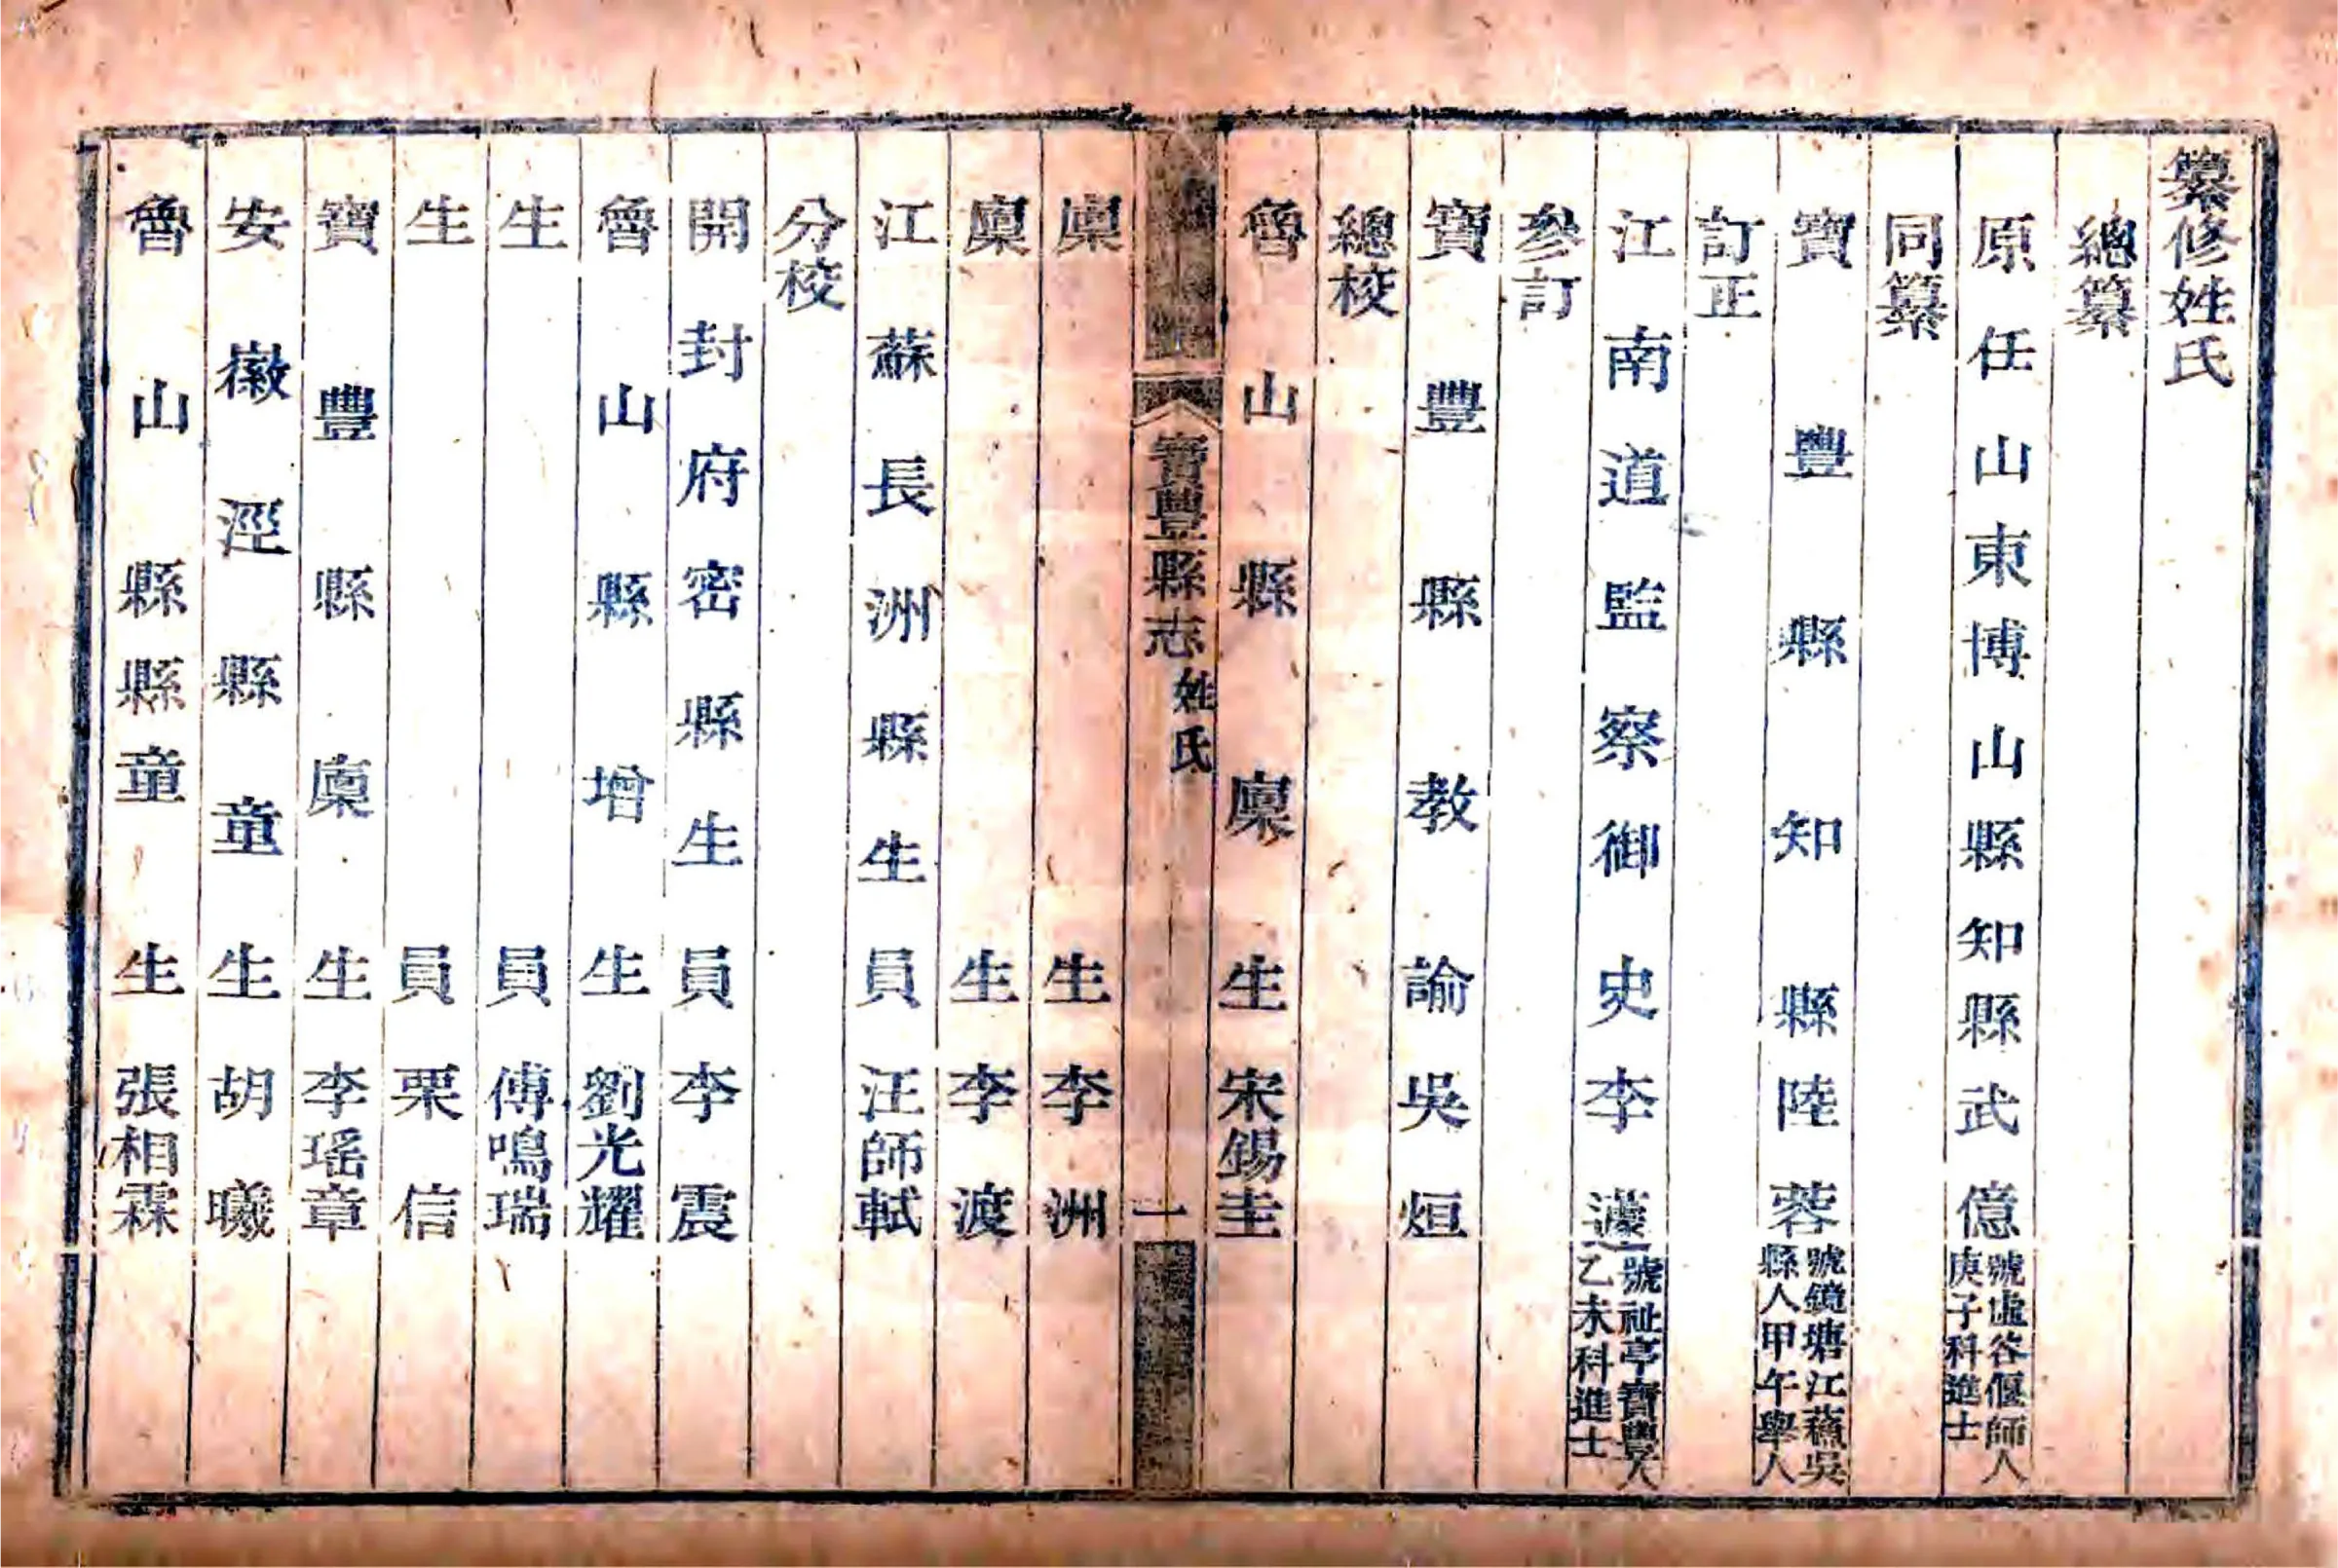 纂修姓氏
總纂
原任山東博山縣知縣武億號虛谷偃師人庚子科進士
同纂
寶豐縣知縣陸蓉號鏡塘江蘇吳縣人甲午舉人
訂正
江南道監察御史李蘧號祉亭寶豐人乙未科進士
參訂
寶豐縣教諭吳烜
總校
魯山縣廩生宋錫圭
寶豐縣志 姓氏 一
廩生李洲
廩生李渡
江蘇長洲縣生員汪師軾
分校
開封府密縣生員李震
魯山縣增生劉光耀
生員傅鳴瑞
生員栗信
寶豐縣廩生李瑤章
安徽涇縣童生胡曦
魯山縣縣童生張相霖